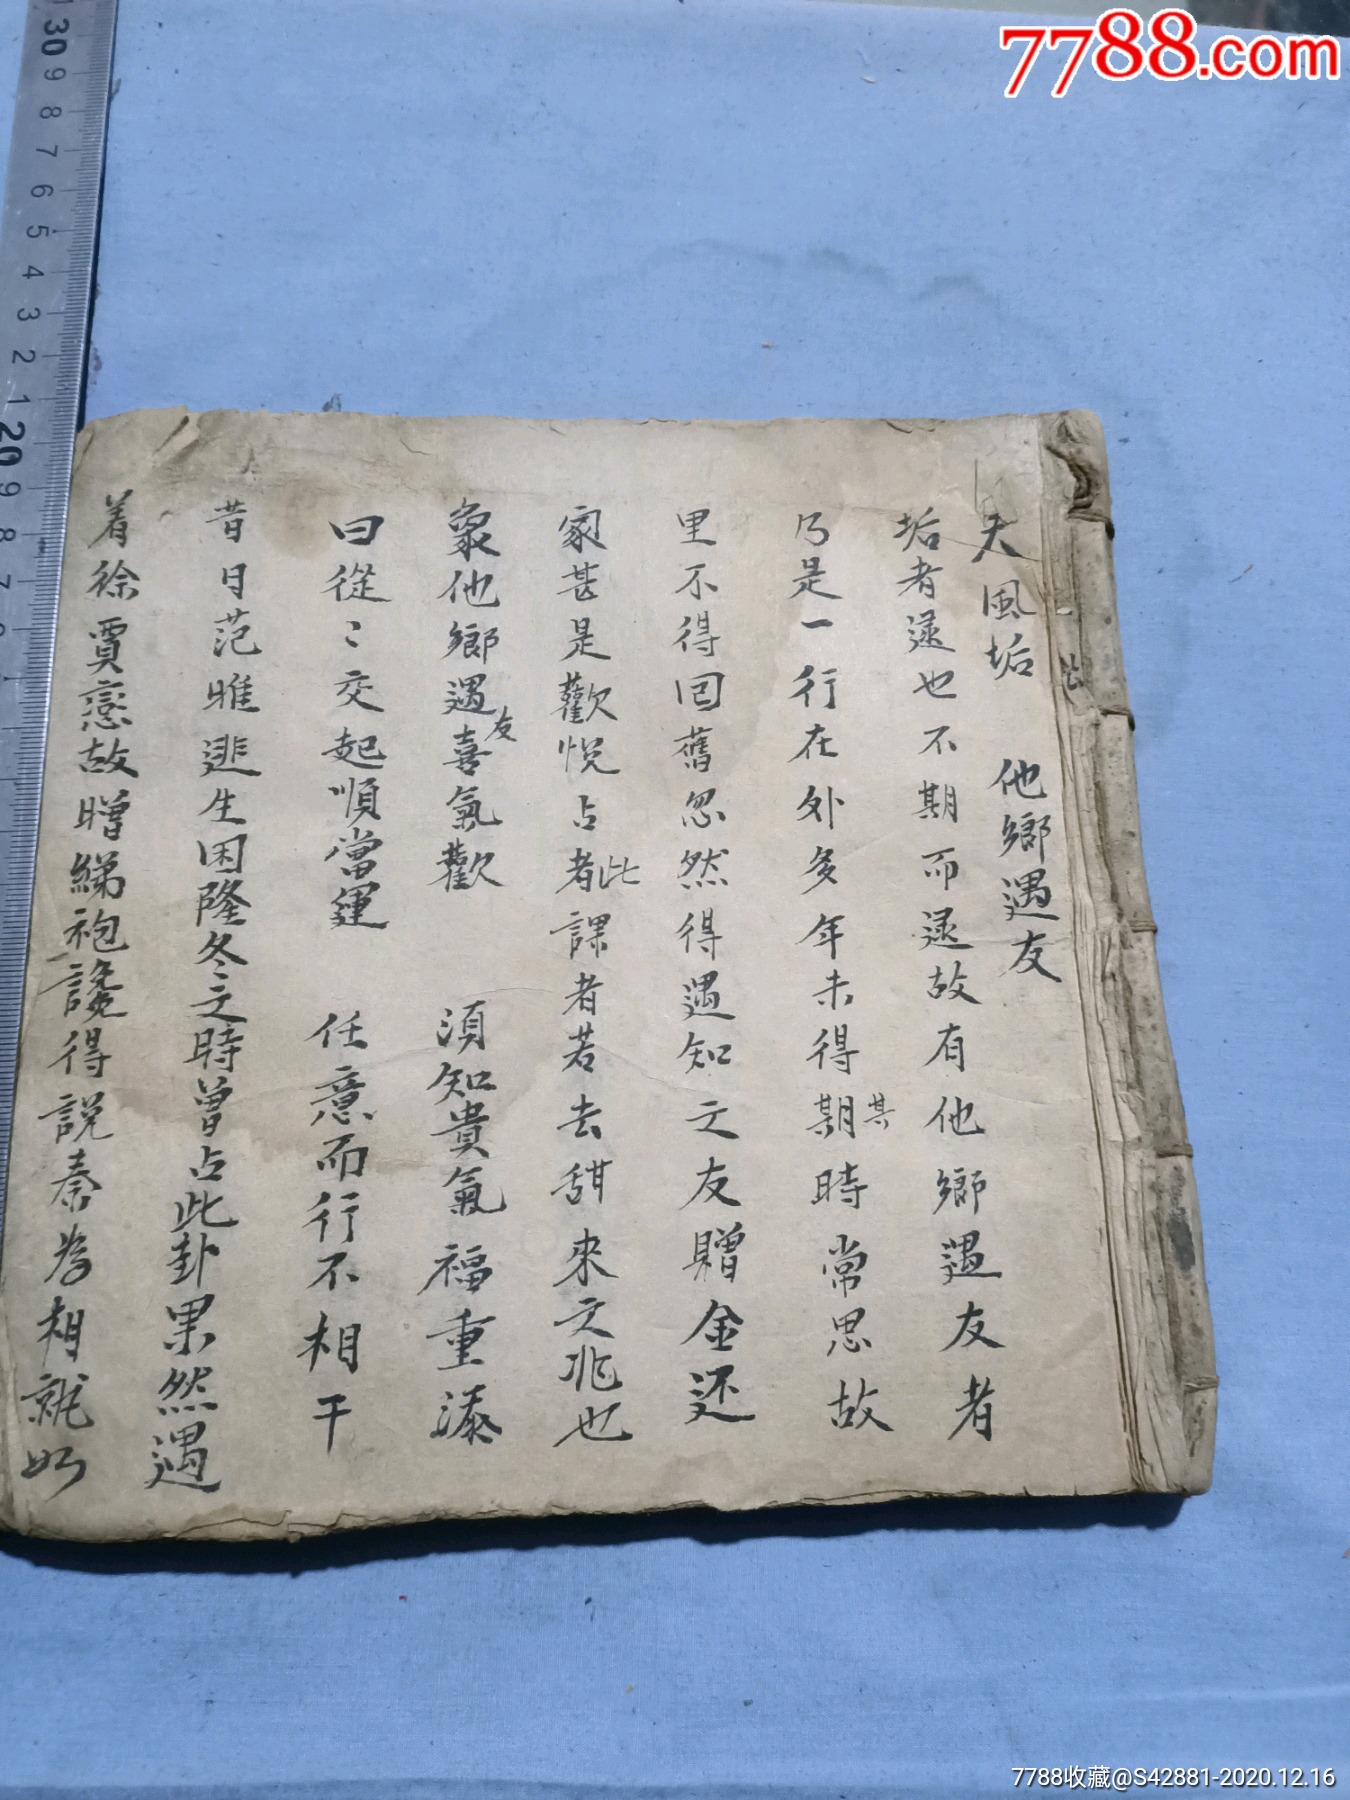 7788.com
天風垢 他鄉遇友
垢者逑也不期而逑故有他鄉遇友者
乃是一行在外多年未得期其時常思故
里不得回舊忽然得遇知之友贈金还
家甚是歡悅占者此課者若去甜來之兆也
象他鄉遇友喜氣歡 須知貴氣福重添
曰從〻交起順當運 任意而行不相干
昔日范睢逃生困隆冬之時曾占此卦果然遇
着徐賈戀故贈綈袍讒得說秦为相就如
130 9 8 7 6 5 4 3 2 1 20 9 8 7
7788收藏@S42881-2020.12.16